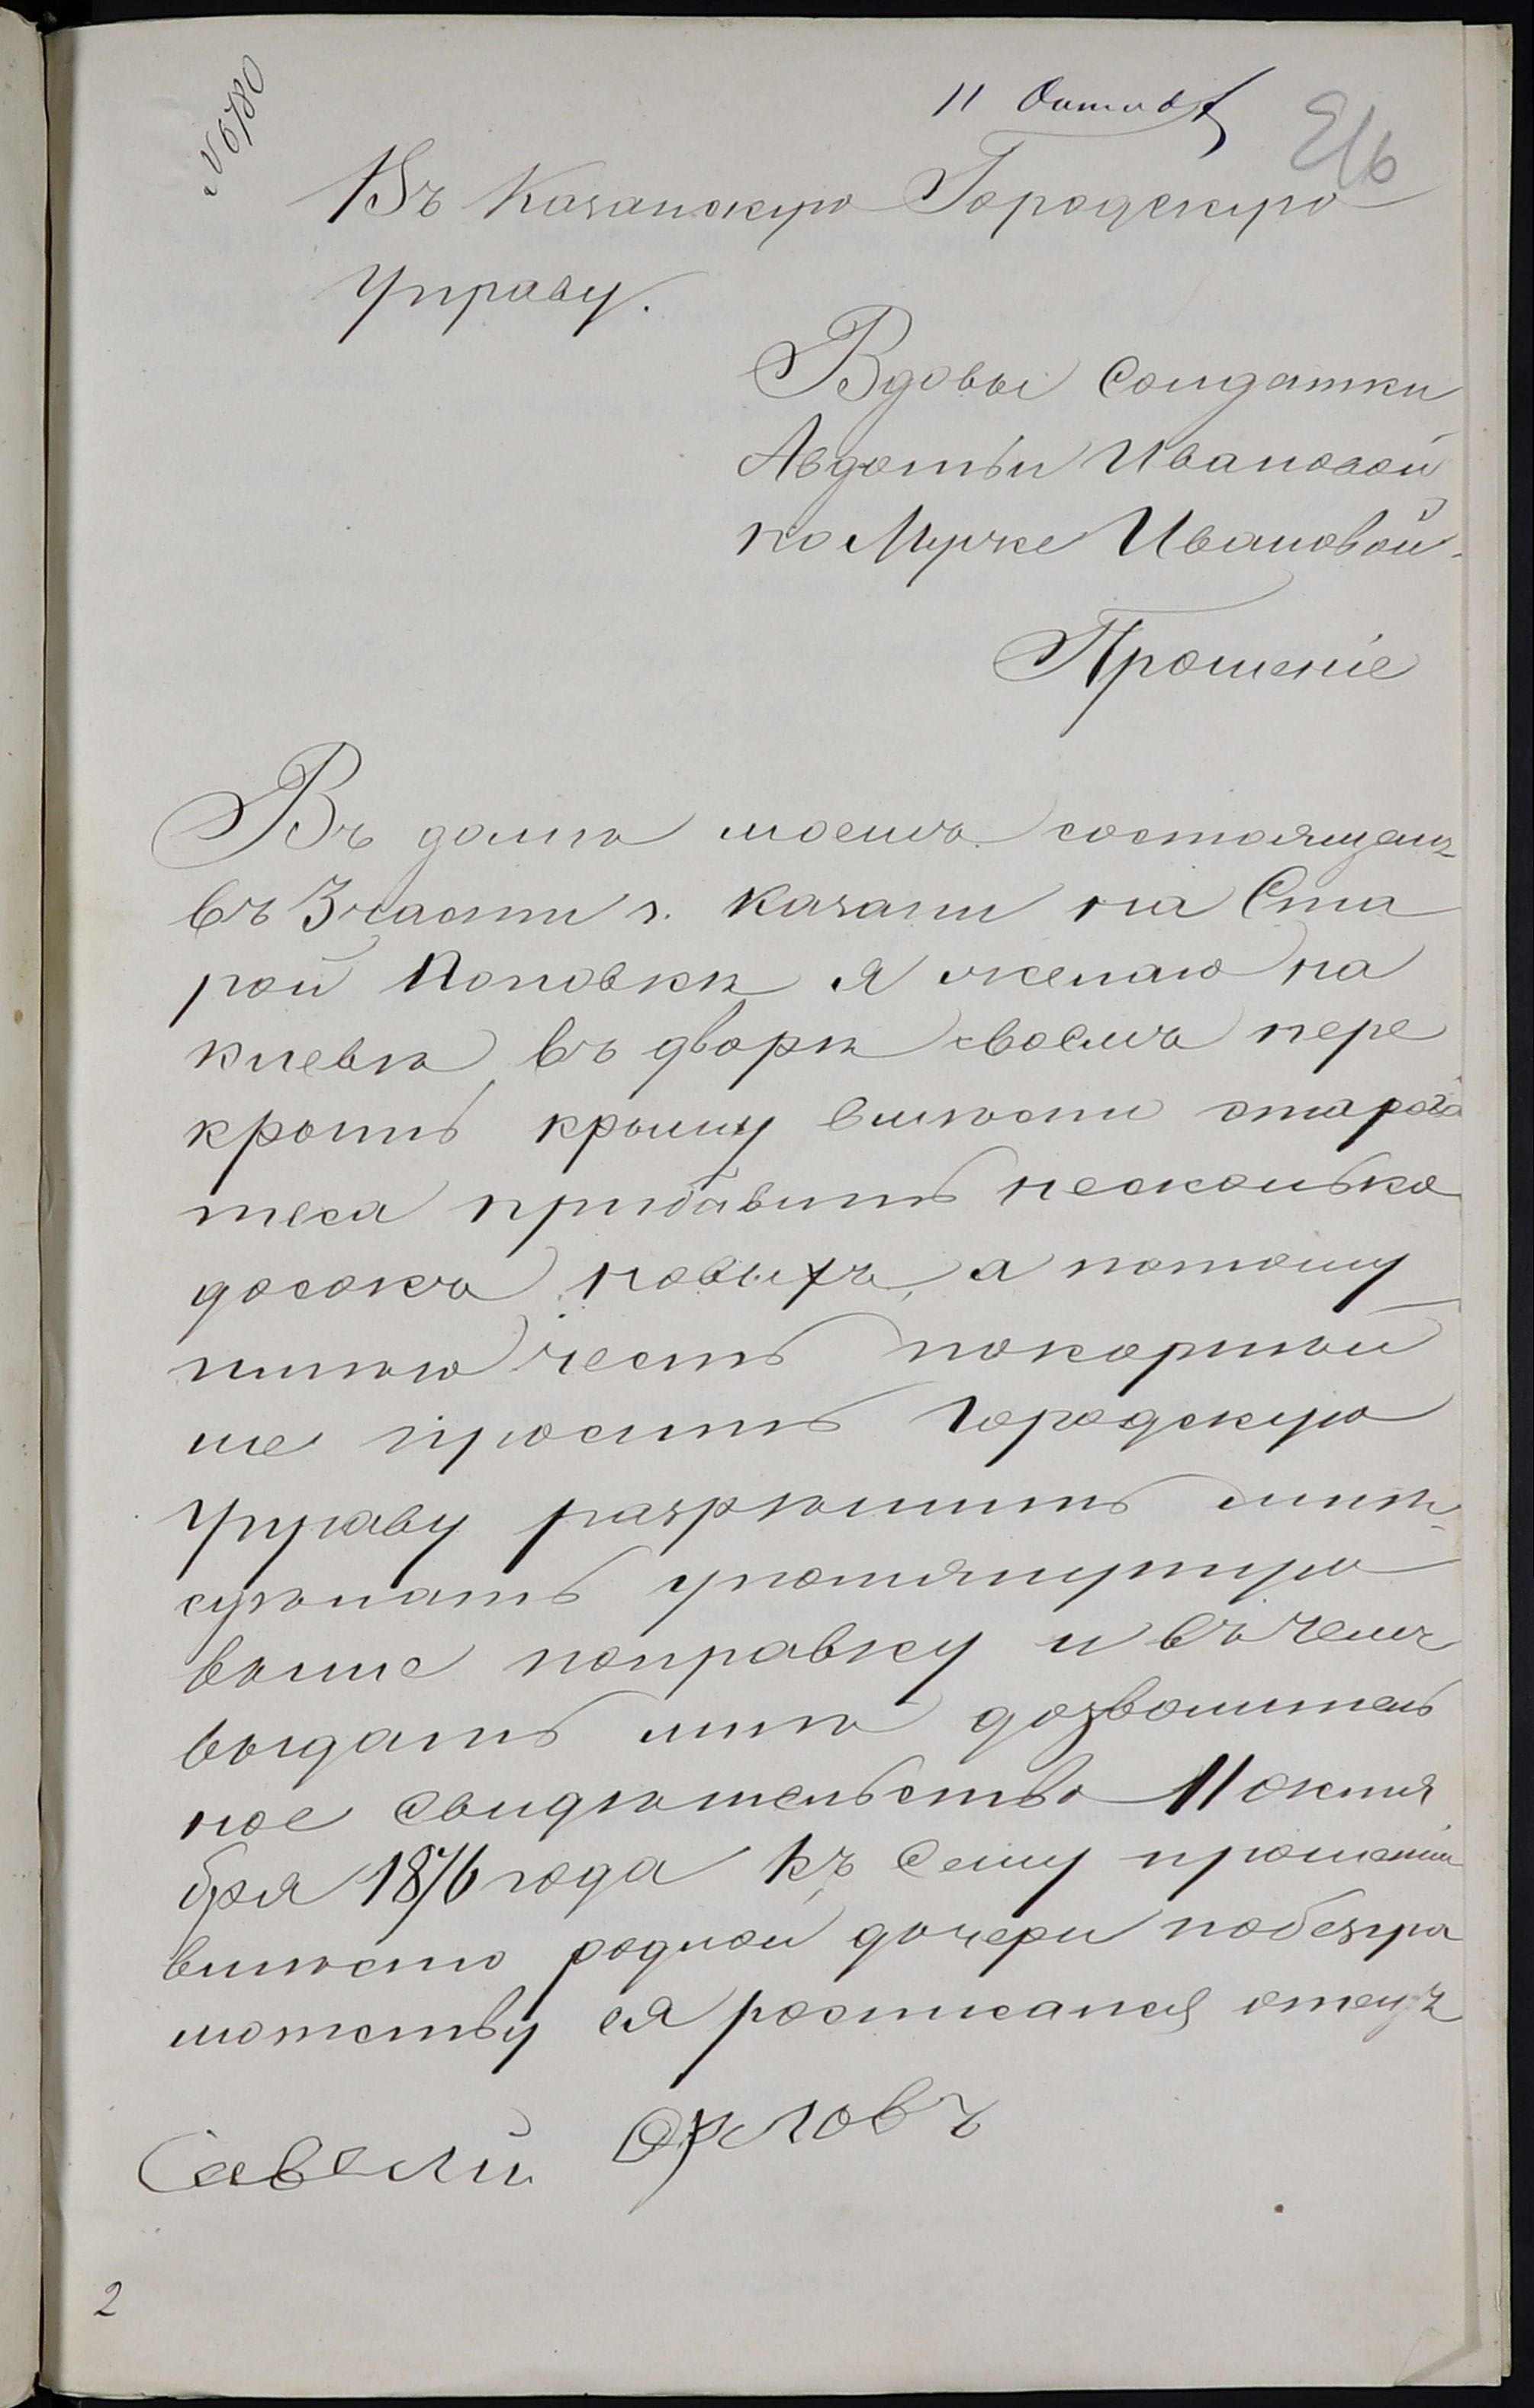 № 6780
11 Октяб
Въ Казанскую Городскую
Управу.
Вдовы Солдатки
Авдотьи Ивановой
по Муже Ивановой
Прошеніе
Въ домѣ моемъ состоящемъ
въ 3 части г. Казани на Ста
рой Поповкѣ я желаю на
хлевѣ въ дворѣ своемъ пере
крыть крышу вмѣсто стараго
теса прибавить несколько
досокъ новыхъ, а потому
имѣю честь покорней
ше просить Городскую
Управу разрѣшить мнѣ
сделать упомянутую
выше поправку и въ чемъ
выдать мнѣ дозволитель
ное свидѣтельство 11 октя
бря 1876 года Къ сему прошению
вместо родной дочери побезгра
мотству ея росписался отецъ
Савелий Орловъ
2